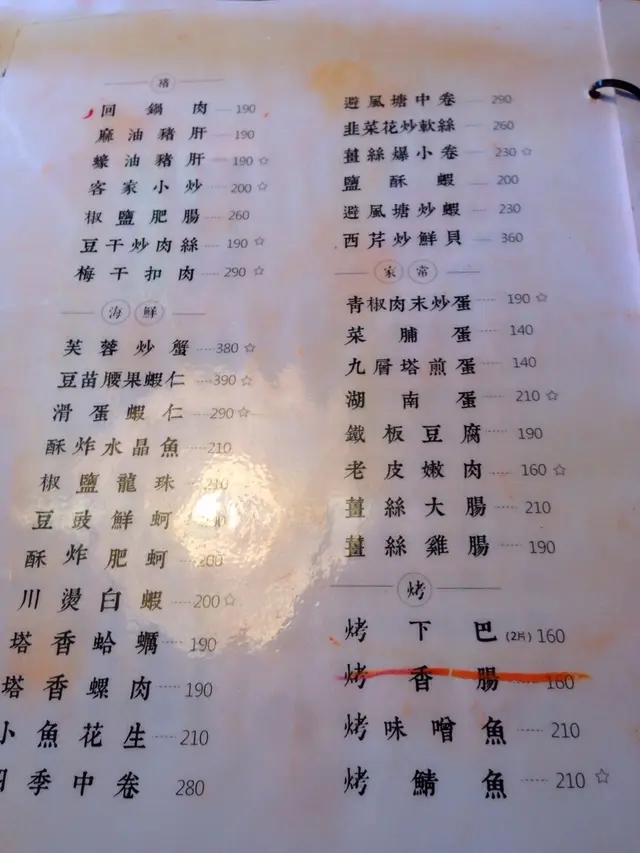 豬
回鍋肉 190
麻油豬肝 190
蠔油豬肝 190 ☆
客家小炒 200 ☆
椒鹽肥腸 260
豆干炒肉絲 190 ☆
梅干扣肉 290 ☆
海鮮
芙蓉炒蟹 380 ☆
豆苗腰果蝦仁 390 ☆
滑蛋蝦仁 290 ☆
酥炸水晶魚 210
椒鹽龍珠 210
豆豉鮮蚵
酥炸肥蚵 200
川燙白蝦 200 ☆
塔香蛤蠣 190
塔香螺肉 190
小魚花生 210
四季中卷 280
避風塘中卷 290
韭菜花炒軟絲 260
薑絲爆小卷 230 ☆
鹽酥蝦 200
避風塘炒蝦 230
西芹炒鮮貝 360
家常
青椒肉末炒蛋 190 ☆
菜脯蛋 140
九層塔煎蛋 140
湖南蛋 210 ☆
鐵板豆腐 190
老皮嫩肉 160 ☆
薑絲大腸 210
薑絲雞腸 190
烤
烤下巴 (2片) 160
烤香腸 160
烤味噌魚 210
烤鯖魚 210 ☆